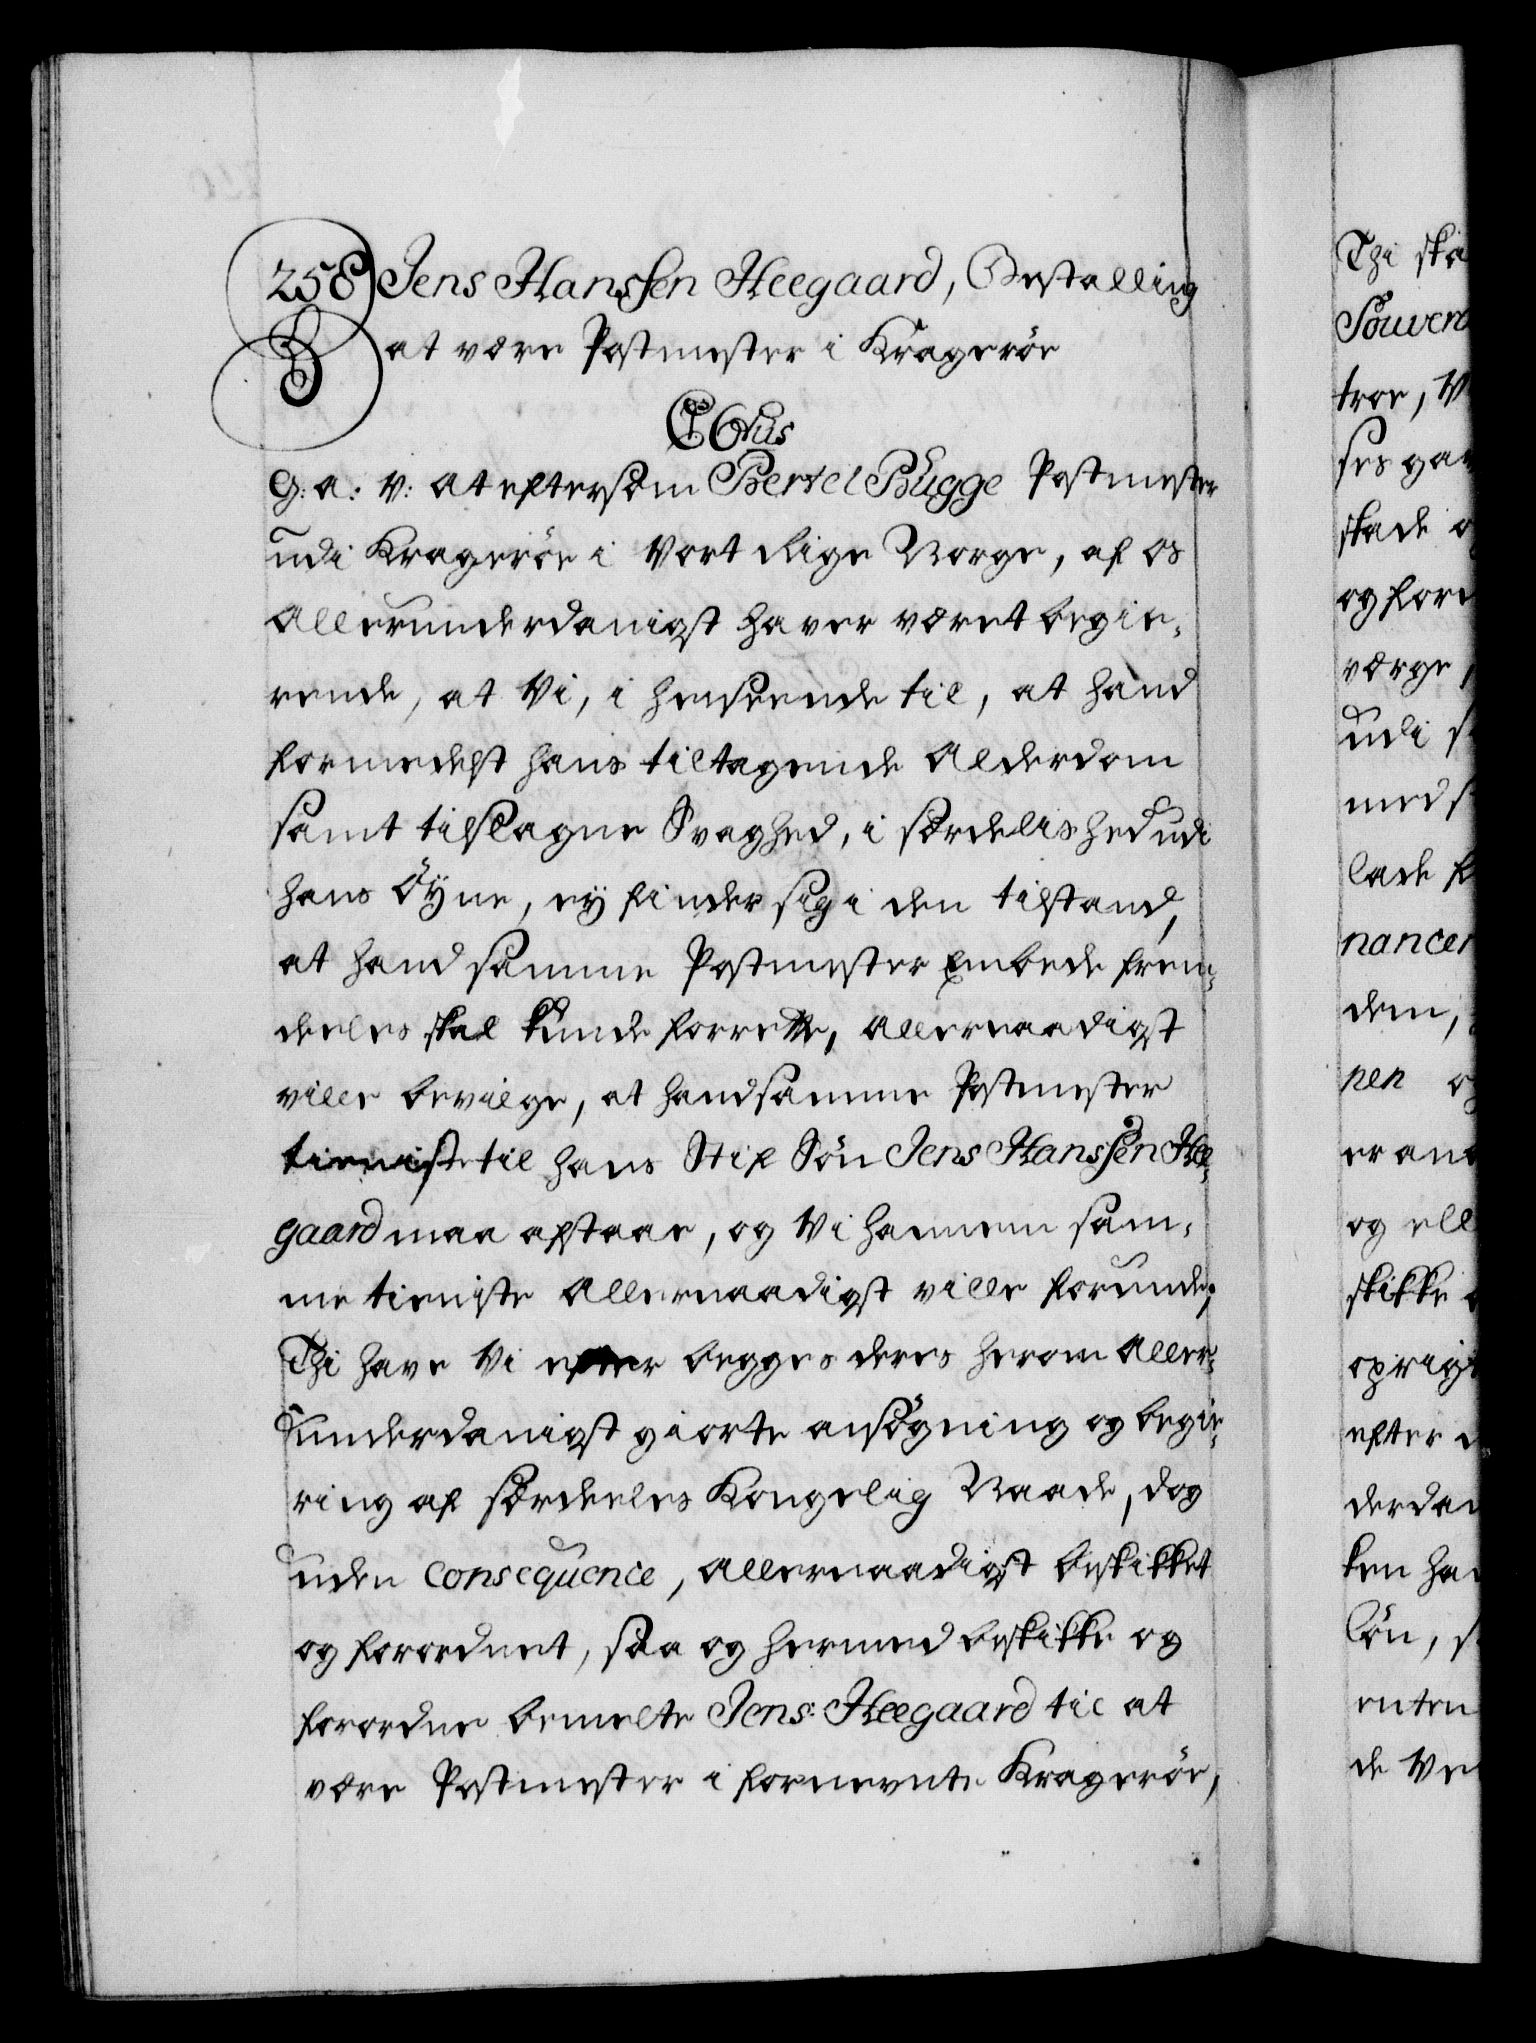 258 Jens Hanssen Heegaard, Bestalling
at være Postmester i Kragerøe
C 6tus
G: a: v: at eftersom Bertel Bugge Postmester
udi Kragerøe i Vort Rige Norge, af os
allerunderdanigst haver været begie-
rende, at Vi, i henseende til, at hand
formedelst hans tiltagende Alderdom
samt tilslagne Svaghed, i særdelished udi
hans Öyne, ey finder sig i den tilstand,
at hand samme Postmester Embede frem-
deeles skal kunde forrette, allernaadigst
ville bevilge, at hand samme Postmester
tieniste til hans Stif Søn Jens Hanssen Hee-
gaard maa afstaae, og Vi hannem sam-
me tieniste allernaadigst ville forunde;
Thi have Vi efter begges deres herom aller-
underdanigst giorte ansøgning og begie-
ring af særdeeles Kongelig Naade, dog
uden consequence, allernaadigst beskikket
og forordnet, saa og hermed beskikke og
forordne bemelte Jens: Heegaard til at
være Postmester i fornevnte Kragerøe,
Thi ska
Souver
troe, V
ses gav
skade o
og for
værge,
udi s
med s
lade f
nancer
dem,
nen og
er an
og ell
skikke
oprigt
efter
derdan
ken ha
løn, s
enten
de Ve